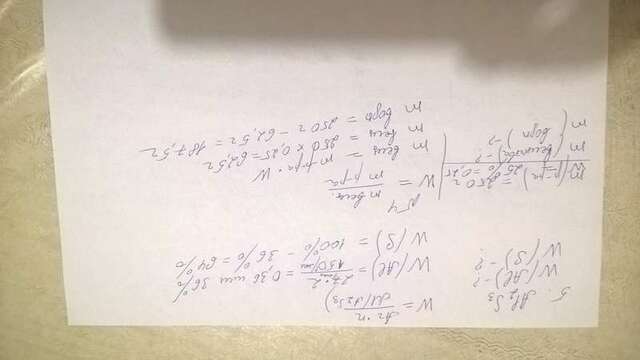 5. Al₂S₃
W(Al) - ?
W(S) - ?
W = Ar · n / M(Al₂S₃)
W(Al) = 27 · 2 / 150 = 0,36 или 36%
W(S) = 100% - 36% = 64%
№4
m(р-ра) = 250г
W = 25% = 0,25
m(вещества) - ?
m(воды) - ?
W = m вещ. / m р-ра
m вещ = m р-ра · W
m вещ = 250 × 0,25 = 62,5г
m воды = 250г - 62,5г = 187,5г